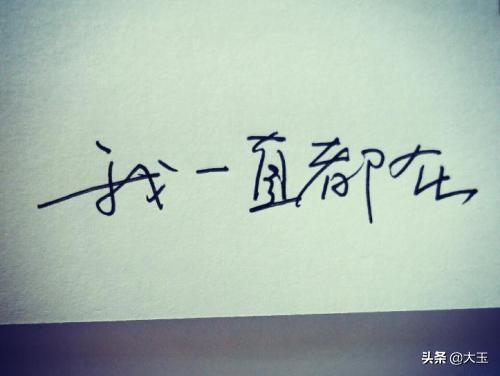 我一直都在
头条 @大玉